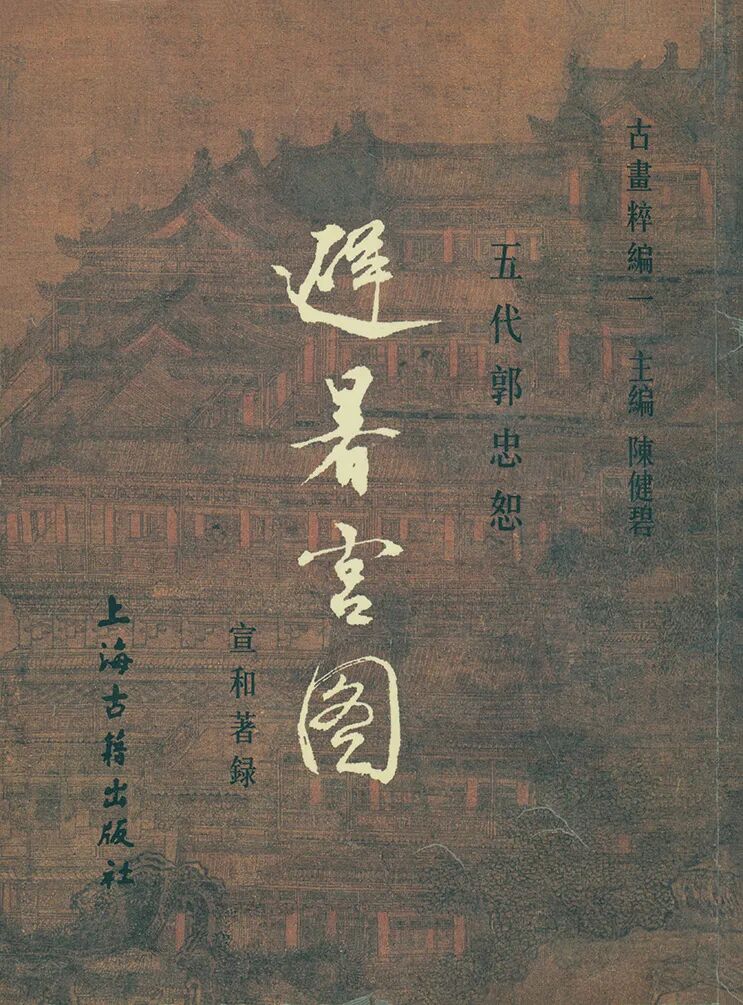 古畫粹編一 主編 陳健碧
五代郭忠恕
避暑宫图
宣和著録
上海古籍出版社